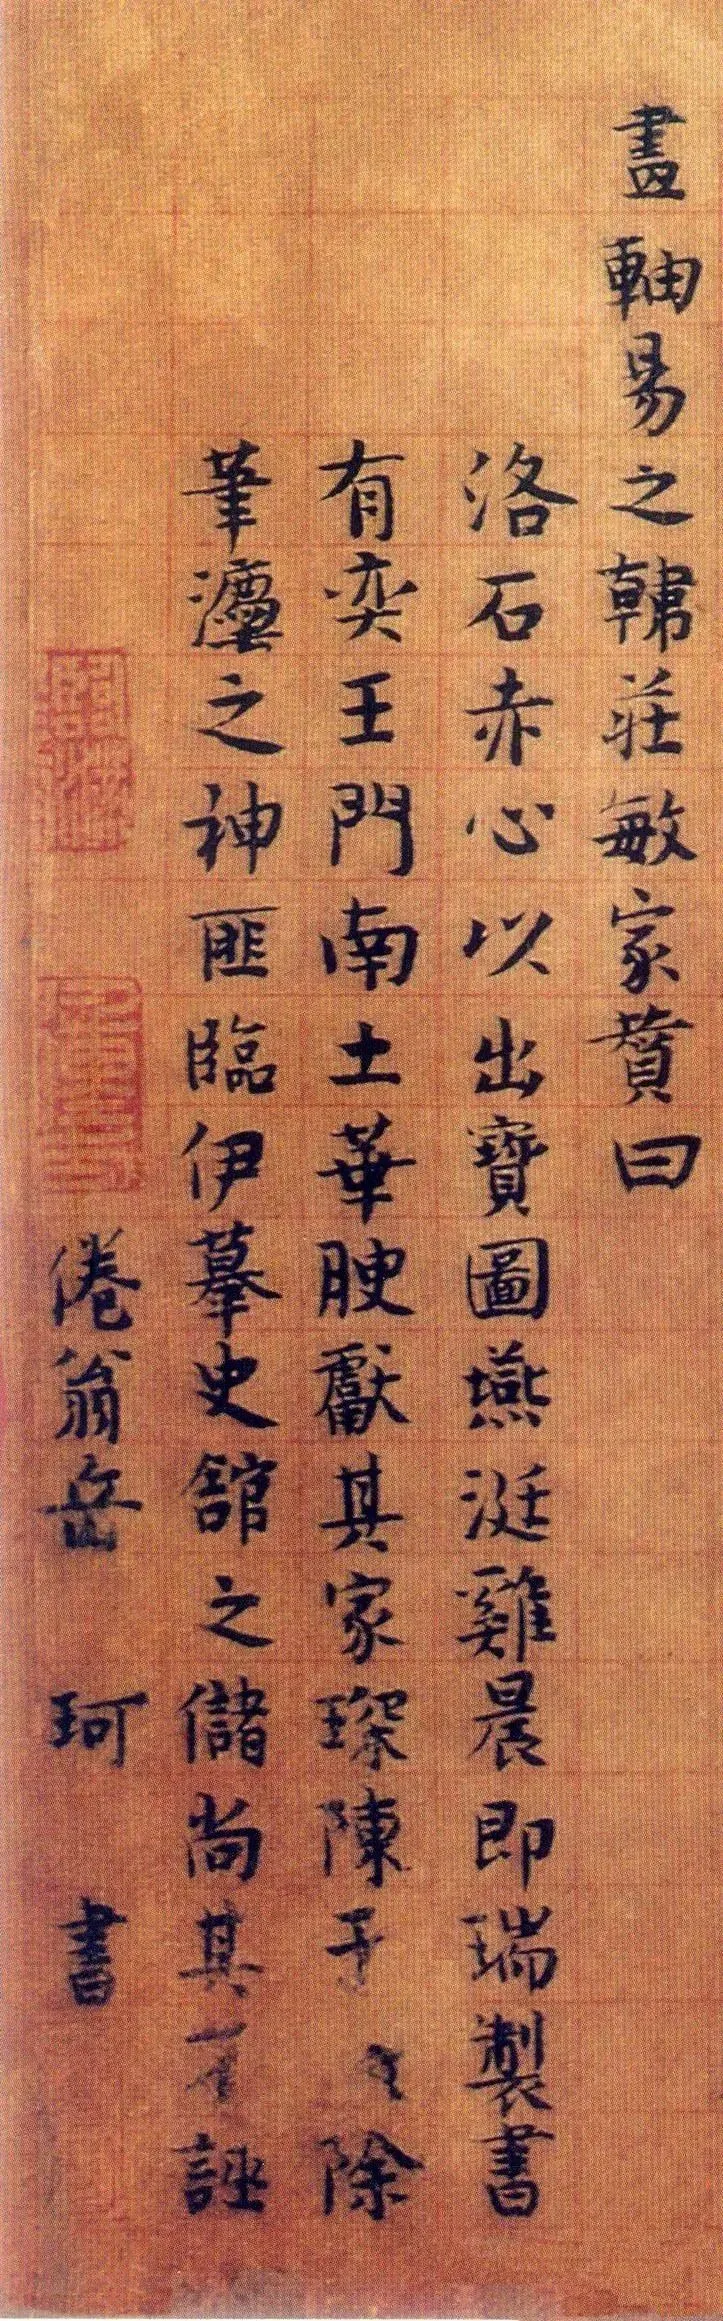 畫軸易之韓莊敏家贊曰
洛石赤心以出寶圖燕涎雞晨即瑞製書
有奕王門南土華腴獻其家琛陳于除
筆灋之神匪臨伊摹史館之儲尚其誣
倦翁岳珂書